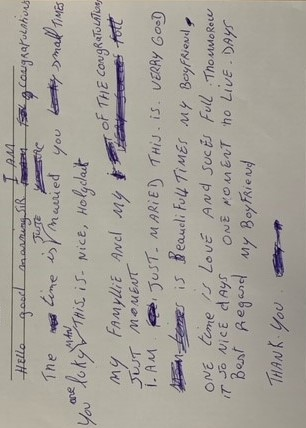 Hello good morning SIR I AM congratulations
The time is JUSTE married you small TIMES
You are luky MAN THIS IS. NICE, Holyulak
MY FAMYLIE AND MY OF THE CONGRATULATION
JUST MOMENT
I.AM JUST. MARIED THIS. IS. VERRY GOOD
IS BEAUDIFULL TIMES MY BOYFRIEND.
ONE time is LOVE AND SUCES FULL THOMMOROW
IT SO NICE DAYS ONE MOMENT TO LIVE. DAYS
Best Regard MY BOYFRIEND
THANK. YOU.